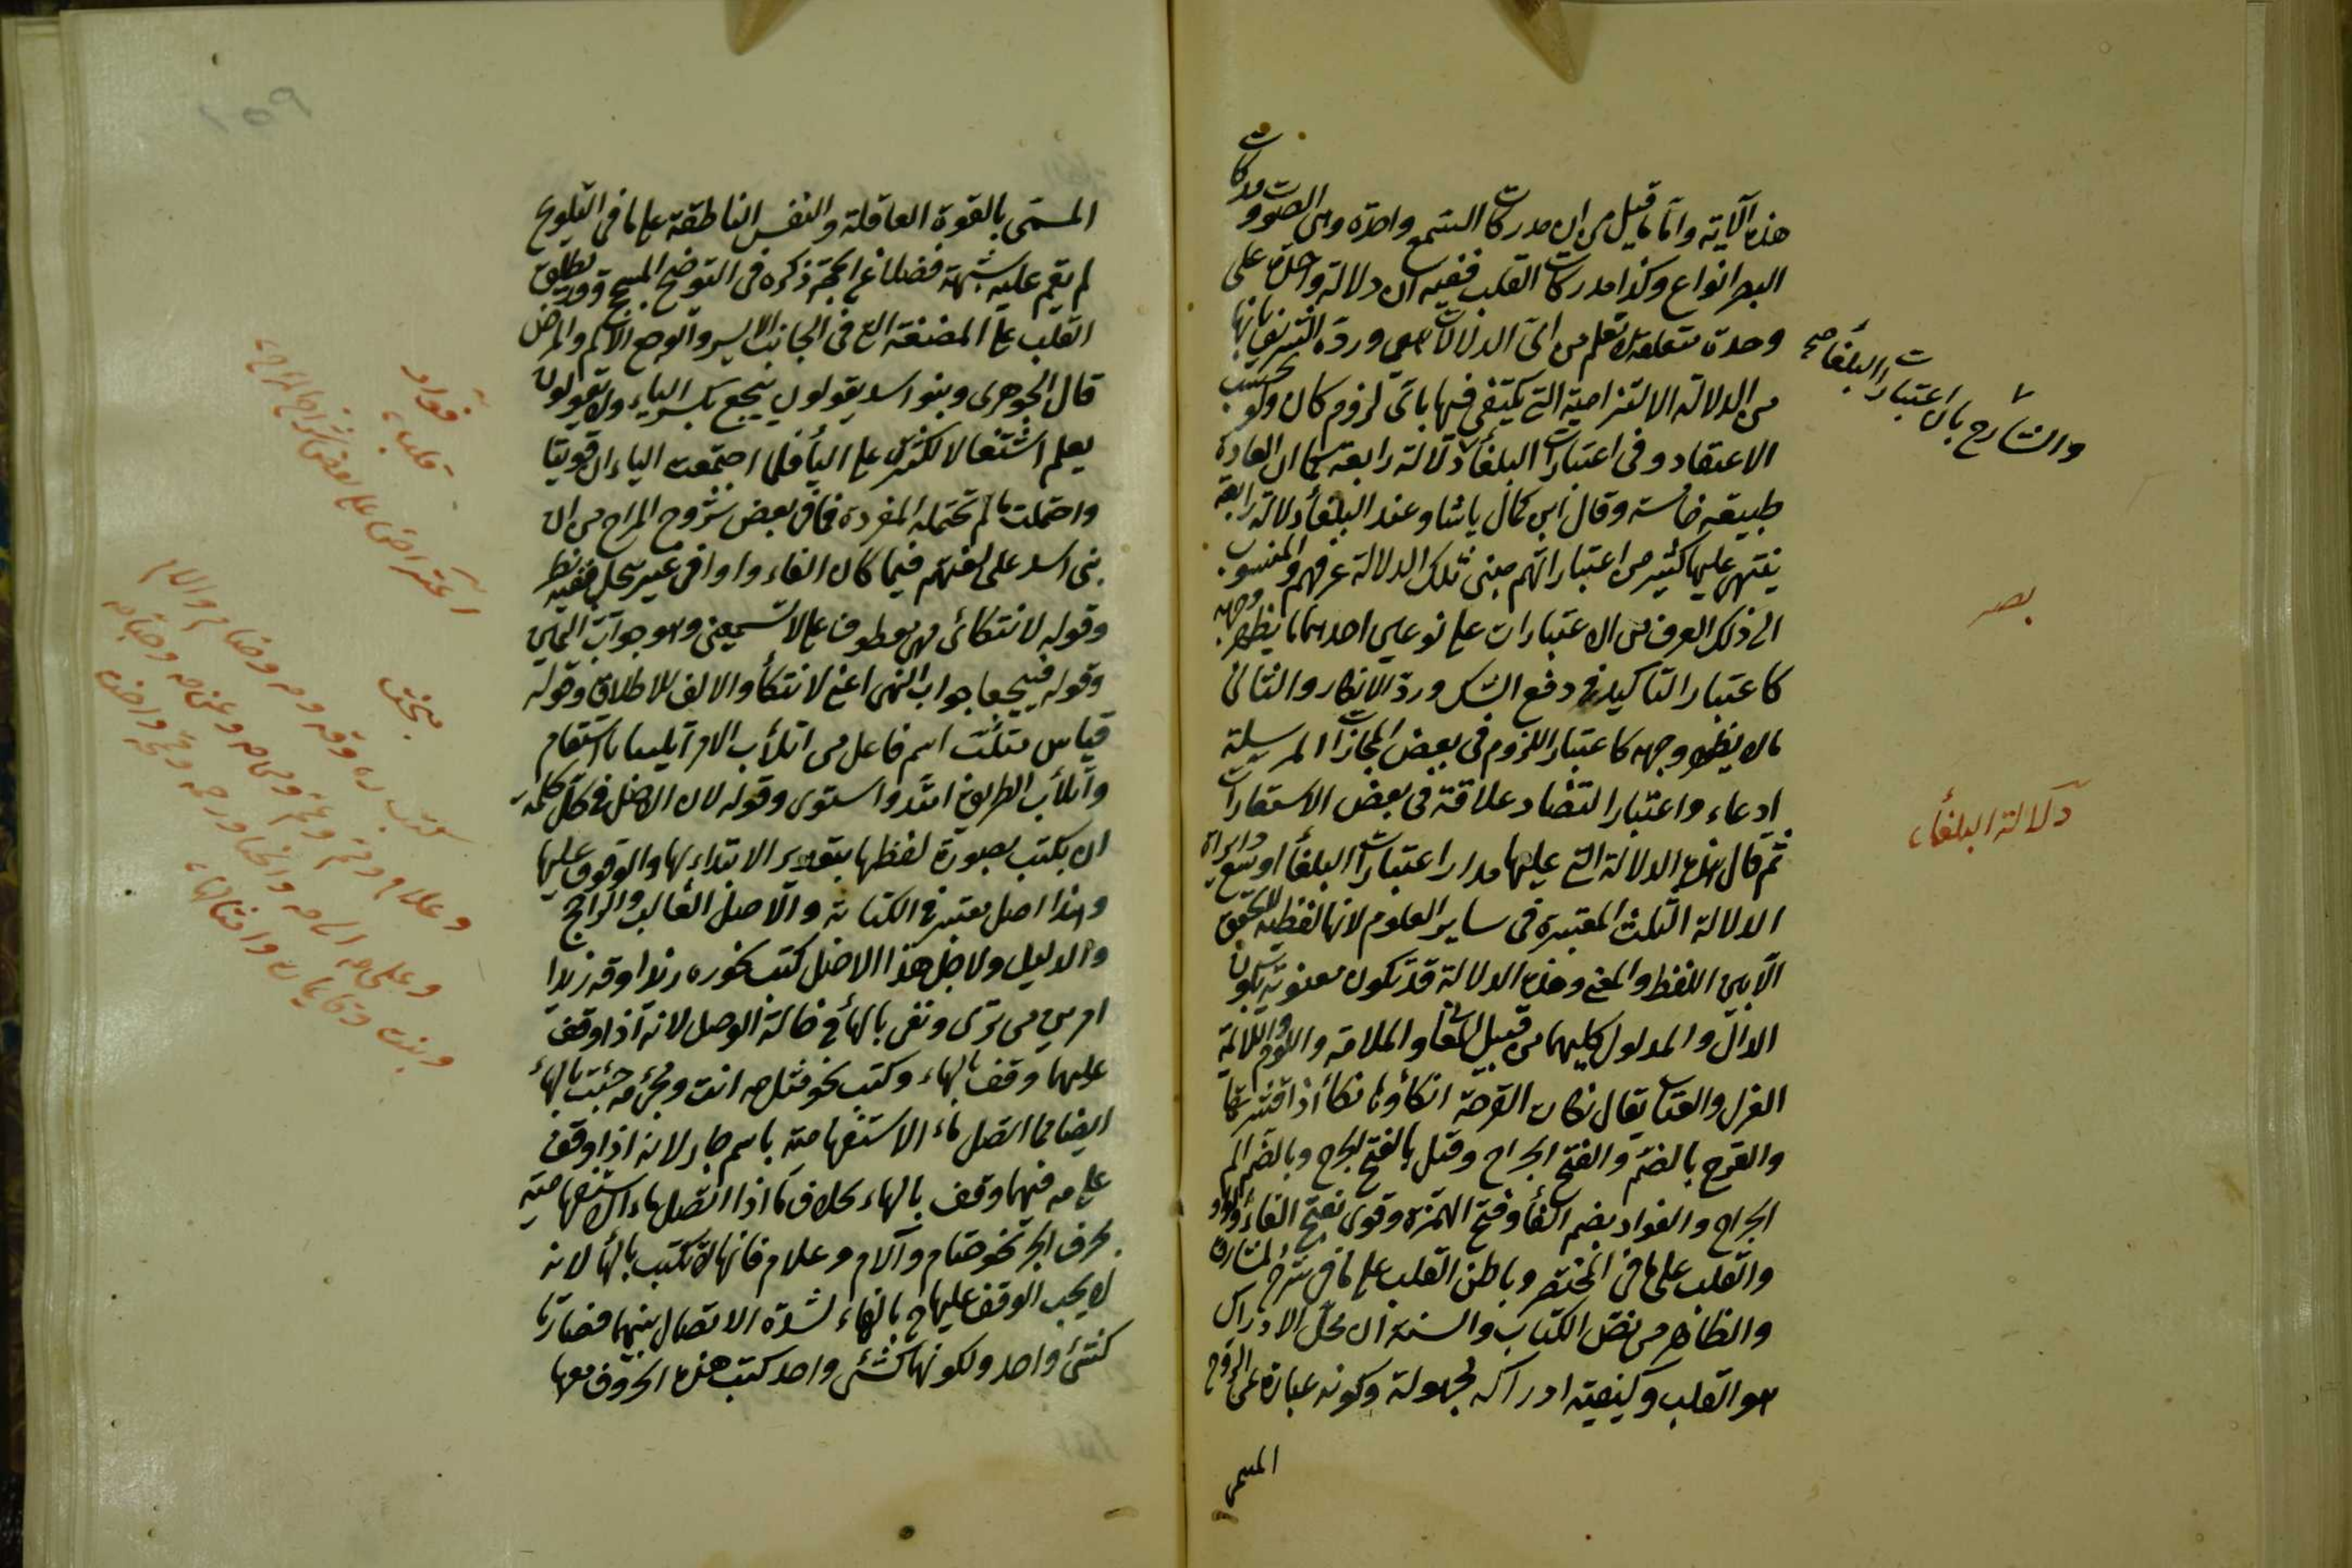 هذه الآية واما ما قيل من ان مدركات السمع واحدة وهى الصوت ومدركات
البصر انواع وكذا مدركات القلب ففيه ان دلالة واحدة على
وحدة متعلقه لا تعلم من اى الدلالات هى ورده الشريف بانها
من الدلالة الالتزامية التى يكتفى فيها باى لزوم كان ولو بحسب
الاعتقاد وفى اعتبارات البلغاء دلالة رابعة كما ان العادة
طبيعة خامسة وقال ابن كمال پاشا وعند البلغاء دلالة رابعة
يبتنى عليها كثير من اعتباراتهم مبنى تلك الدلالة عرفهم والمنسوب
الى ذلك العرف من الاعتبارات على نوعين احدهما ما يظهر وجهه
كاعتبار التاكيد فى دفع الشك ورد الانكار والثانى
ما لا يظهر وجهه كاعتبار اللزوم فى بعض المجازات المرسلة
ادعاء واعتبار التضاد علاقة فى بعض الاستعارات
ثم قال هذه الدلالة التى عليها مدار اعتبارات البلغاء اوسع دائرة من
الدلالة الثلث المعتبرة فى ساير العلوم لانها لفظية لا تتحقق
الا بين اللفظ والمعنى وهذه الدلالة قد تكون معنوية يكون
الدال والمدلول كليهما من قبيل المعانى والملامة واللوم واللائمة
العزل والعتاب يقال نكات القرحة انكاؤها نكأ اذا قشرتها
والقرح بالضم والفتح الجراح وقيل بالفتح الجرح وبالضم الم
الجراح والفواد بضم الفاء وفتح الهمزة وقرئ بفتح الفاء والواو
والقلب على ما فى المختصر وباطن القلب على ما فى شرح المشارق
والظاهر من نص الكتاب والسنة ان محل الادراك
هو القلب وكيفية ادراكه مجهولة وكونه عبارة عن الروح
المسمى
والشارح بان اعتبارات البلغاء صح
بصر
دلالة البلغاء
المسمى بالقوة العاقلة والنفس الناطقة على ما فى التلويح
لم يقم عليه شبهة فضلا عن الحجة ذكره فى التوضيح وقد يطلق
القلب على المضغة التى فى الجانب الايسر والوجع الالم والمرض
قال الجوهرى وبنو اسد يقولون ييجع بكسر الياء ولا يقولون
يعلم استثقالا للكسرة على الياء فلما اجتمعت الياءان قويتا
واحتملت ما لم تحتمله المفردة فما فى بعض شروح المراح من ان
بنى اسد على لغتهم فيما كان الفاء واوا فى غير محله ففيه نظر
وقوله لا تنكائى نهى معطوف على الا تسمعينى وهو جواب اليمين
وقوله فييجعا جواب النهى اعنى لا تنكأ والالف للاطلاق وقوله
قياس متلئب اسم فاعل من اتلأب الامر اتلئبابا استقام
واتلأب الطريق امتد واستوى وقوله لان الاصل فى كل كلمة
ان يكتب بصورة لفظها بتقدير الابتداء بها والوقوف عليها
وهذا اصل معتبر فى الكتابة والاصل الغالب والراجح
والدليل ولاجل هذا الاصل كتب نحو ره زيدا وقه زيدا
امرين من ترى وتقى بالهاء فى حالة الوصل لانه اذا وقف
عليهما وقف بالهاء وكتب نحو مثل مه انت ومجئ مه جئت بالهاء
ايضا مما اتصل ماء الاستفهامية باسم جار لانه اذا وقف
على مه فيهما وقف بالهاء بخلاف ما اذا اتصل ماء الاستفهامية
بحرف الجر نحو حتام والام وعلام فانها لا تكتب بالهاء لانه
لا يجب الوقف عليها ح بالهاء لشدة الاتصال بينهما فصارتا
كشئ واحد ولكونها كشئ واحد كتب هذه الحروف معها
فؤاد
قلب
اعتراض على بعض شراح المراح
مبحث
كتب ره وقه